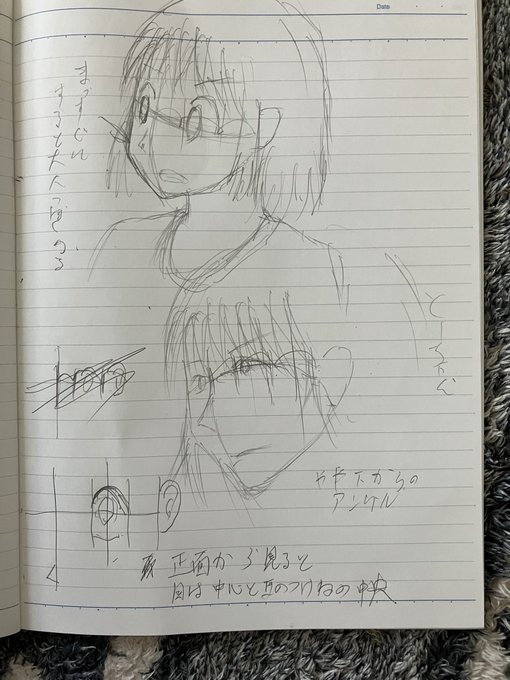 Date
まっすぐに
すると大人っぽくなる
やや下からの
アングル
正面から見ると
目は中心と耳のつけねの中央